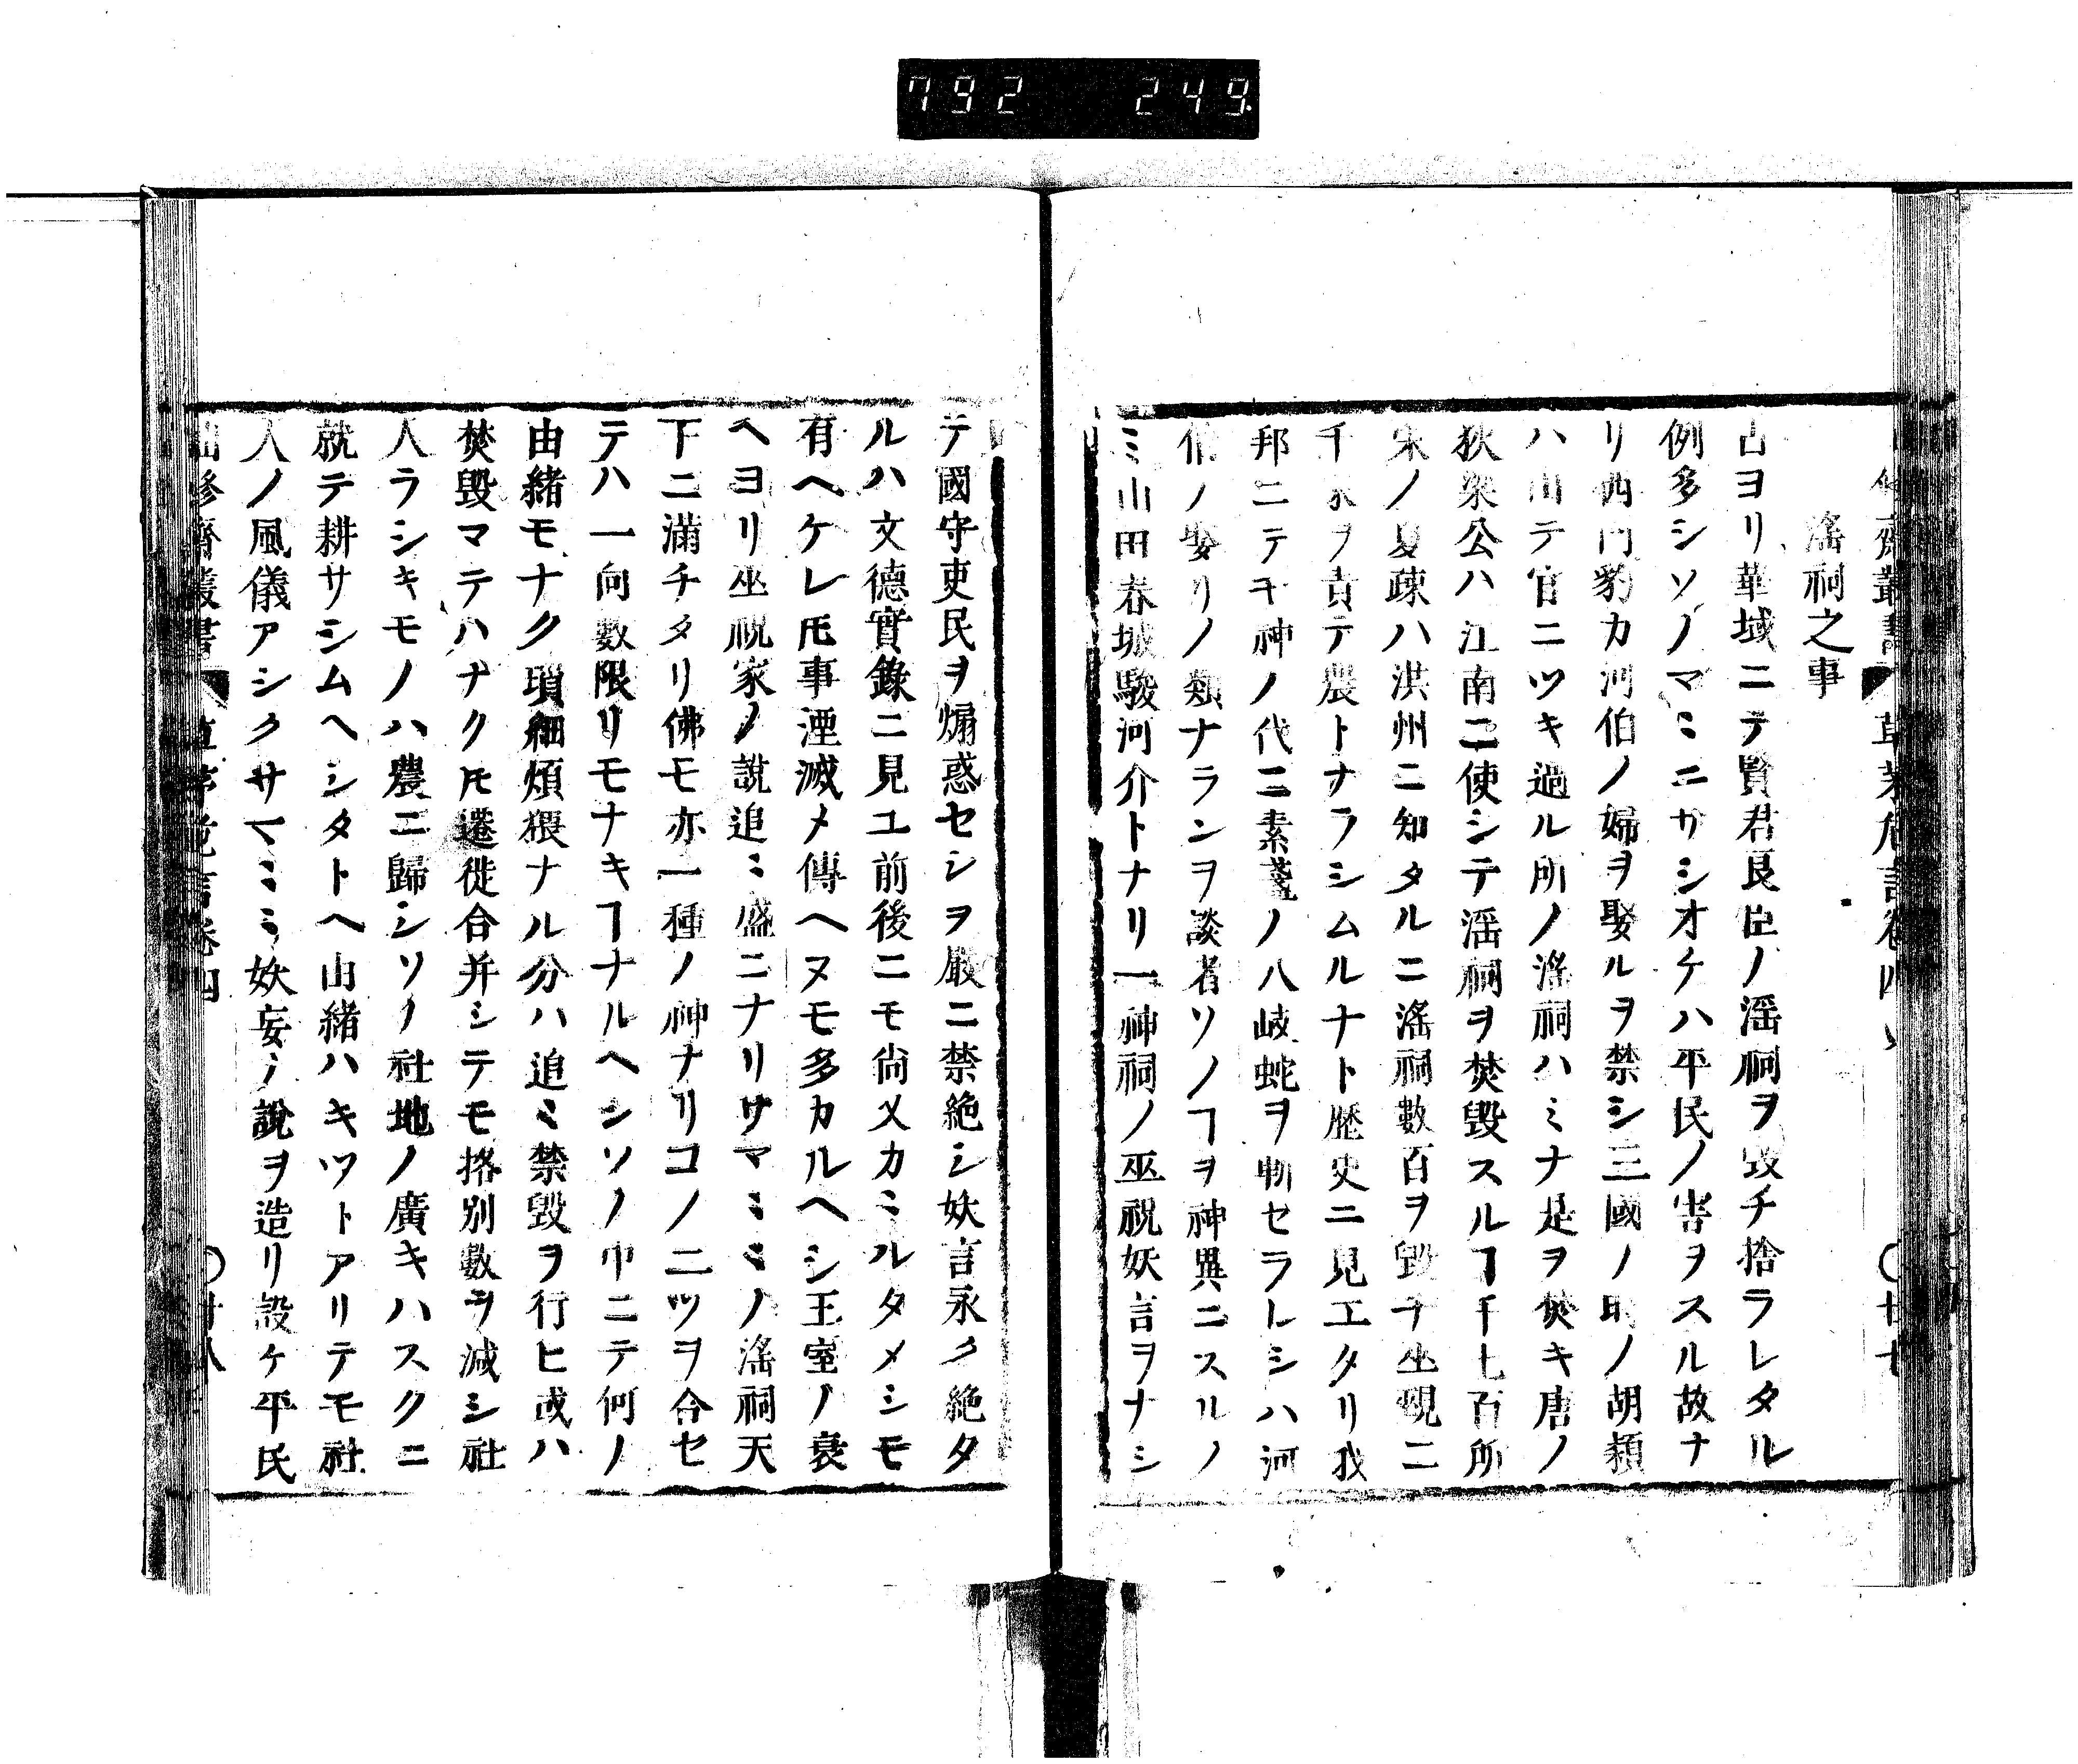 792 249
淫祠之事
古ヨリ華域ニテ賢君良臣ノ淫祠ヲ毀チ捨ラレタル
例多シソノマミニサシオケハ平民ノ害ヲスル故ナ
リ西門豹カ河伯ノ婦ヲ娶ルヲ禁シ三國ノ時ノ胡頴
ハ出テ官ニツキ過ル所ノ淫祠ハミナ是ヲ焚キ唐ノ
狄梁公ハ江南ニ使シテ淫祠ヲ焚毀スルヿ千七百所
宋ノ夏疎ハ洪州ニ知タルニ淫祠數百ヲ毀チ巫覡二
千家ヲ責テ農トナラシムルナト歴史ニ見エタリ我
邦ニテモ神ノ代ニ素盞ノ八岐蛇ヲ斬セラレシハ河
伯ノ娶リノ類ナランヲ談者ソノヿヲ神異ニスルノ
ミ山田春城駿河介トナリ一神祠ノ巫祝妖言ヲナシ
テ國守吏民ヲ煽惑セシヲ嚴ニ禁絶シ妖言永ク絶タ
ルハ文德實錄ニ見ユ前後ニモ尚又カミルタメシモ
有ヘケレ𪜈事湮滅メ傳ヘヌモ多カルヘシ王室ノ衰
ヘヨリ巫祝家ノ說追ミ盛ニナリサマミミノ淫祠天
下ニ滿チタリ佛モ亦一種ノ神ナリコノ二ツヲ合セ
テハ一向數限リモナキヿナルヘシソノ中ニテ何ノ
由緒モナク瑣細煩猥ナル分ハ追ミ禁毀ヲ行ヒ或ハ
焚毀マテハナク𪜈遷徙合并シテモ挌別數ヲ減シ社
人ラシキモノハ農ニ歸シソノ社地ノ廣キハスクニ
就テ耕サシムヘシタトヘ由緒ハキツトアリテモ社
人ノ風儀アシクサマミミ妖妄ノ說ヲ造リ設ケ平民